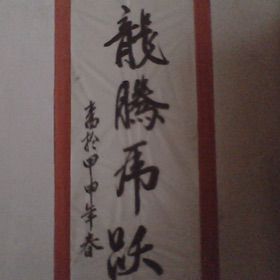 龍騰虎跃
書於甲申年春